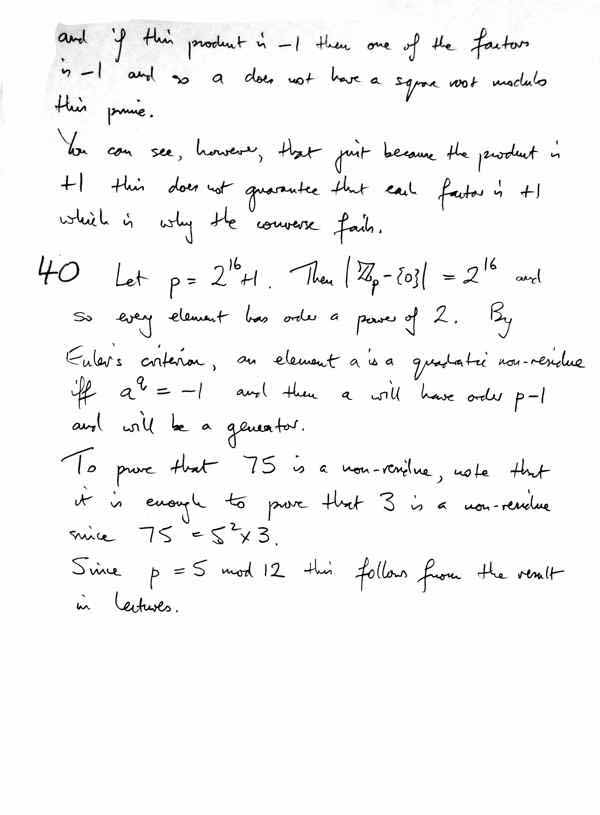 and if this product is -1 then one of the factors
is -1 and so a does not have a square root modulo
this prime.
You can see, however, that just because the product is
+1 this does not guarantee that each factor is +1
which is why the converse fails.
40 Let p = 2¹⁶+1. Then |ℤₚ-{0}| = 2¹⁶ and
so every element has order a power of 2. By
Euler's criterion, an element a is a quadratic non-residue
iff a^q = -1 and then a will have order p-1
and will be a generator.
To prove that 75 is a non-residue, note that
it is enough to prove that 3 is a non-residue
since 75 = 5²×3.
Since p = 5 mod 12 this follows from the result
in lectures.